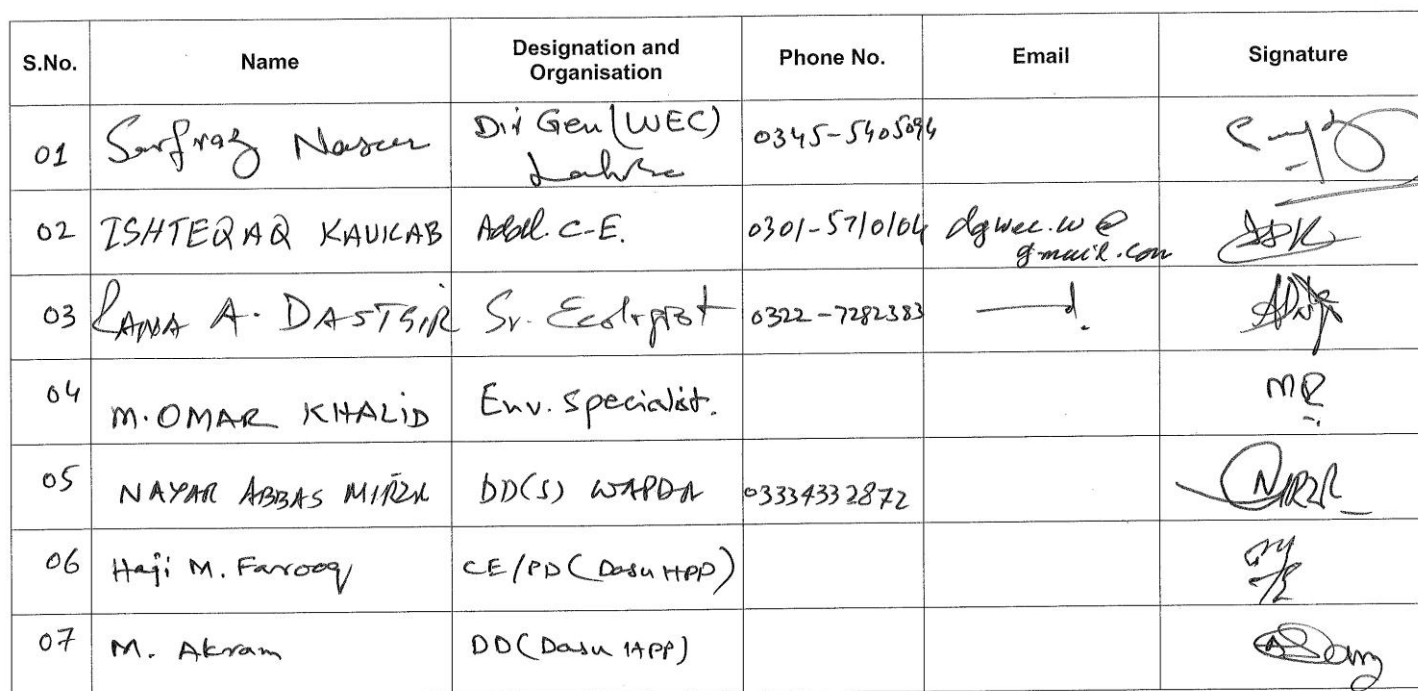 S.No. Name Designation and Organisation Phone No. Email Signature
01 Sarfraz Naseer Dir Gen (WEC) Lahore 0345-5405094
02 ISHTEQAQ KAUKAB Addl. C.E. 0301-5710164 dgwec.w@gmail.com
03 RANA A. DASTGIR Sr. Ecologist 0322-7282383
04 M. OMAR KHALID Env. Specialist.
05 NAYAR ABBAS MIRZA DD(S) WAPDA 03334332872
06 Haji M. Farooq CE/PD (Dasu HPP)
07 M. Akram DD (Dasu HPP)